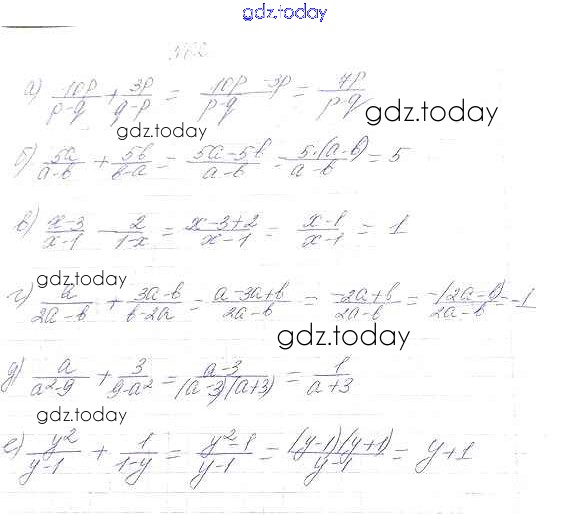 gdz.today
а) 10p/(p-q) + 3p/(q-p) = (10p - 3p)/(p-q) = 7p/(p-q)
gdz.today
gdz.today
б) 5a/(a-b) + 5b/(b-a) = (5a-5b)/(a-b) = 5·(a-b)/(a-b) = 5
в) (x-3)/(x-1) - 2/(1-x) = (x-3+2)/(x-1) = (x-1)/(x-1) = 1
gdz.today
г) a/(2a-b) + (3a-b)/(b-2a) = (a-3a+b)/(2a-b) = (-2a+b)/(2a-b) = -(2a-b)/(2a-b) = -1
gdz.today
д) a/(a²-9) + 3/(9-a²) = (a-3)/((a-3)(a+3)) = 1/(a+3)
gdz.today
е) y²/(y-1) + 1/(1-y) = (y²-1)/(y-1) = (y-1)(y+1)/(y-1) = y+1